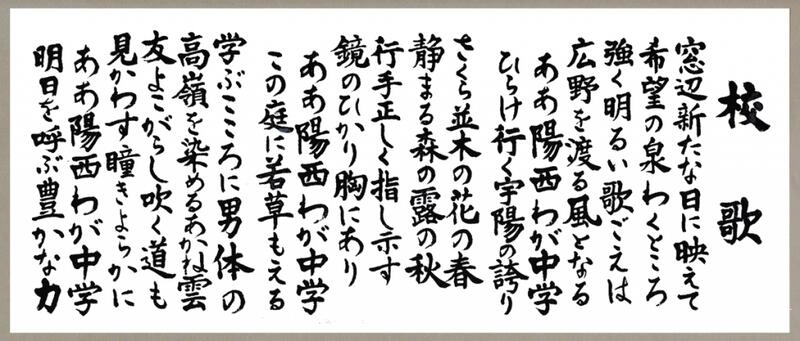 校歌
窓辺新たな日に映えて
希望の泉わくところ
強く明るい歌ごえは
広野を渡る風となる
ああ陽西わが中学
ひらけ行く宇陽の誇り
さくら並木の花の春
静まる森の露の秋
行手正しく指し示す
鏡のひかり胸にあり
ああ陽西わが中学
この庭に若草もえる
学ぶこころに男体の
高嶺を染めるあかね雲
友よこがらし吹く道も
見かわす瞳きよらかに
ああ陽西わが中学
明日を呼ぶ豊かな力